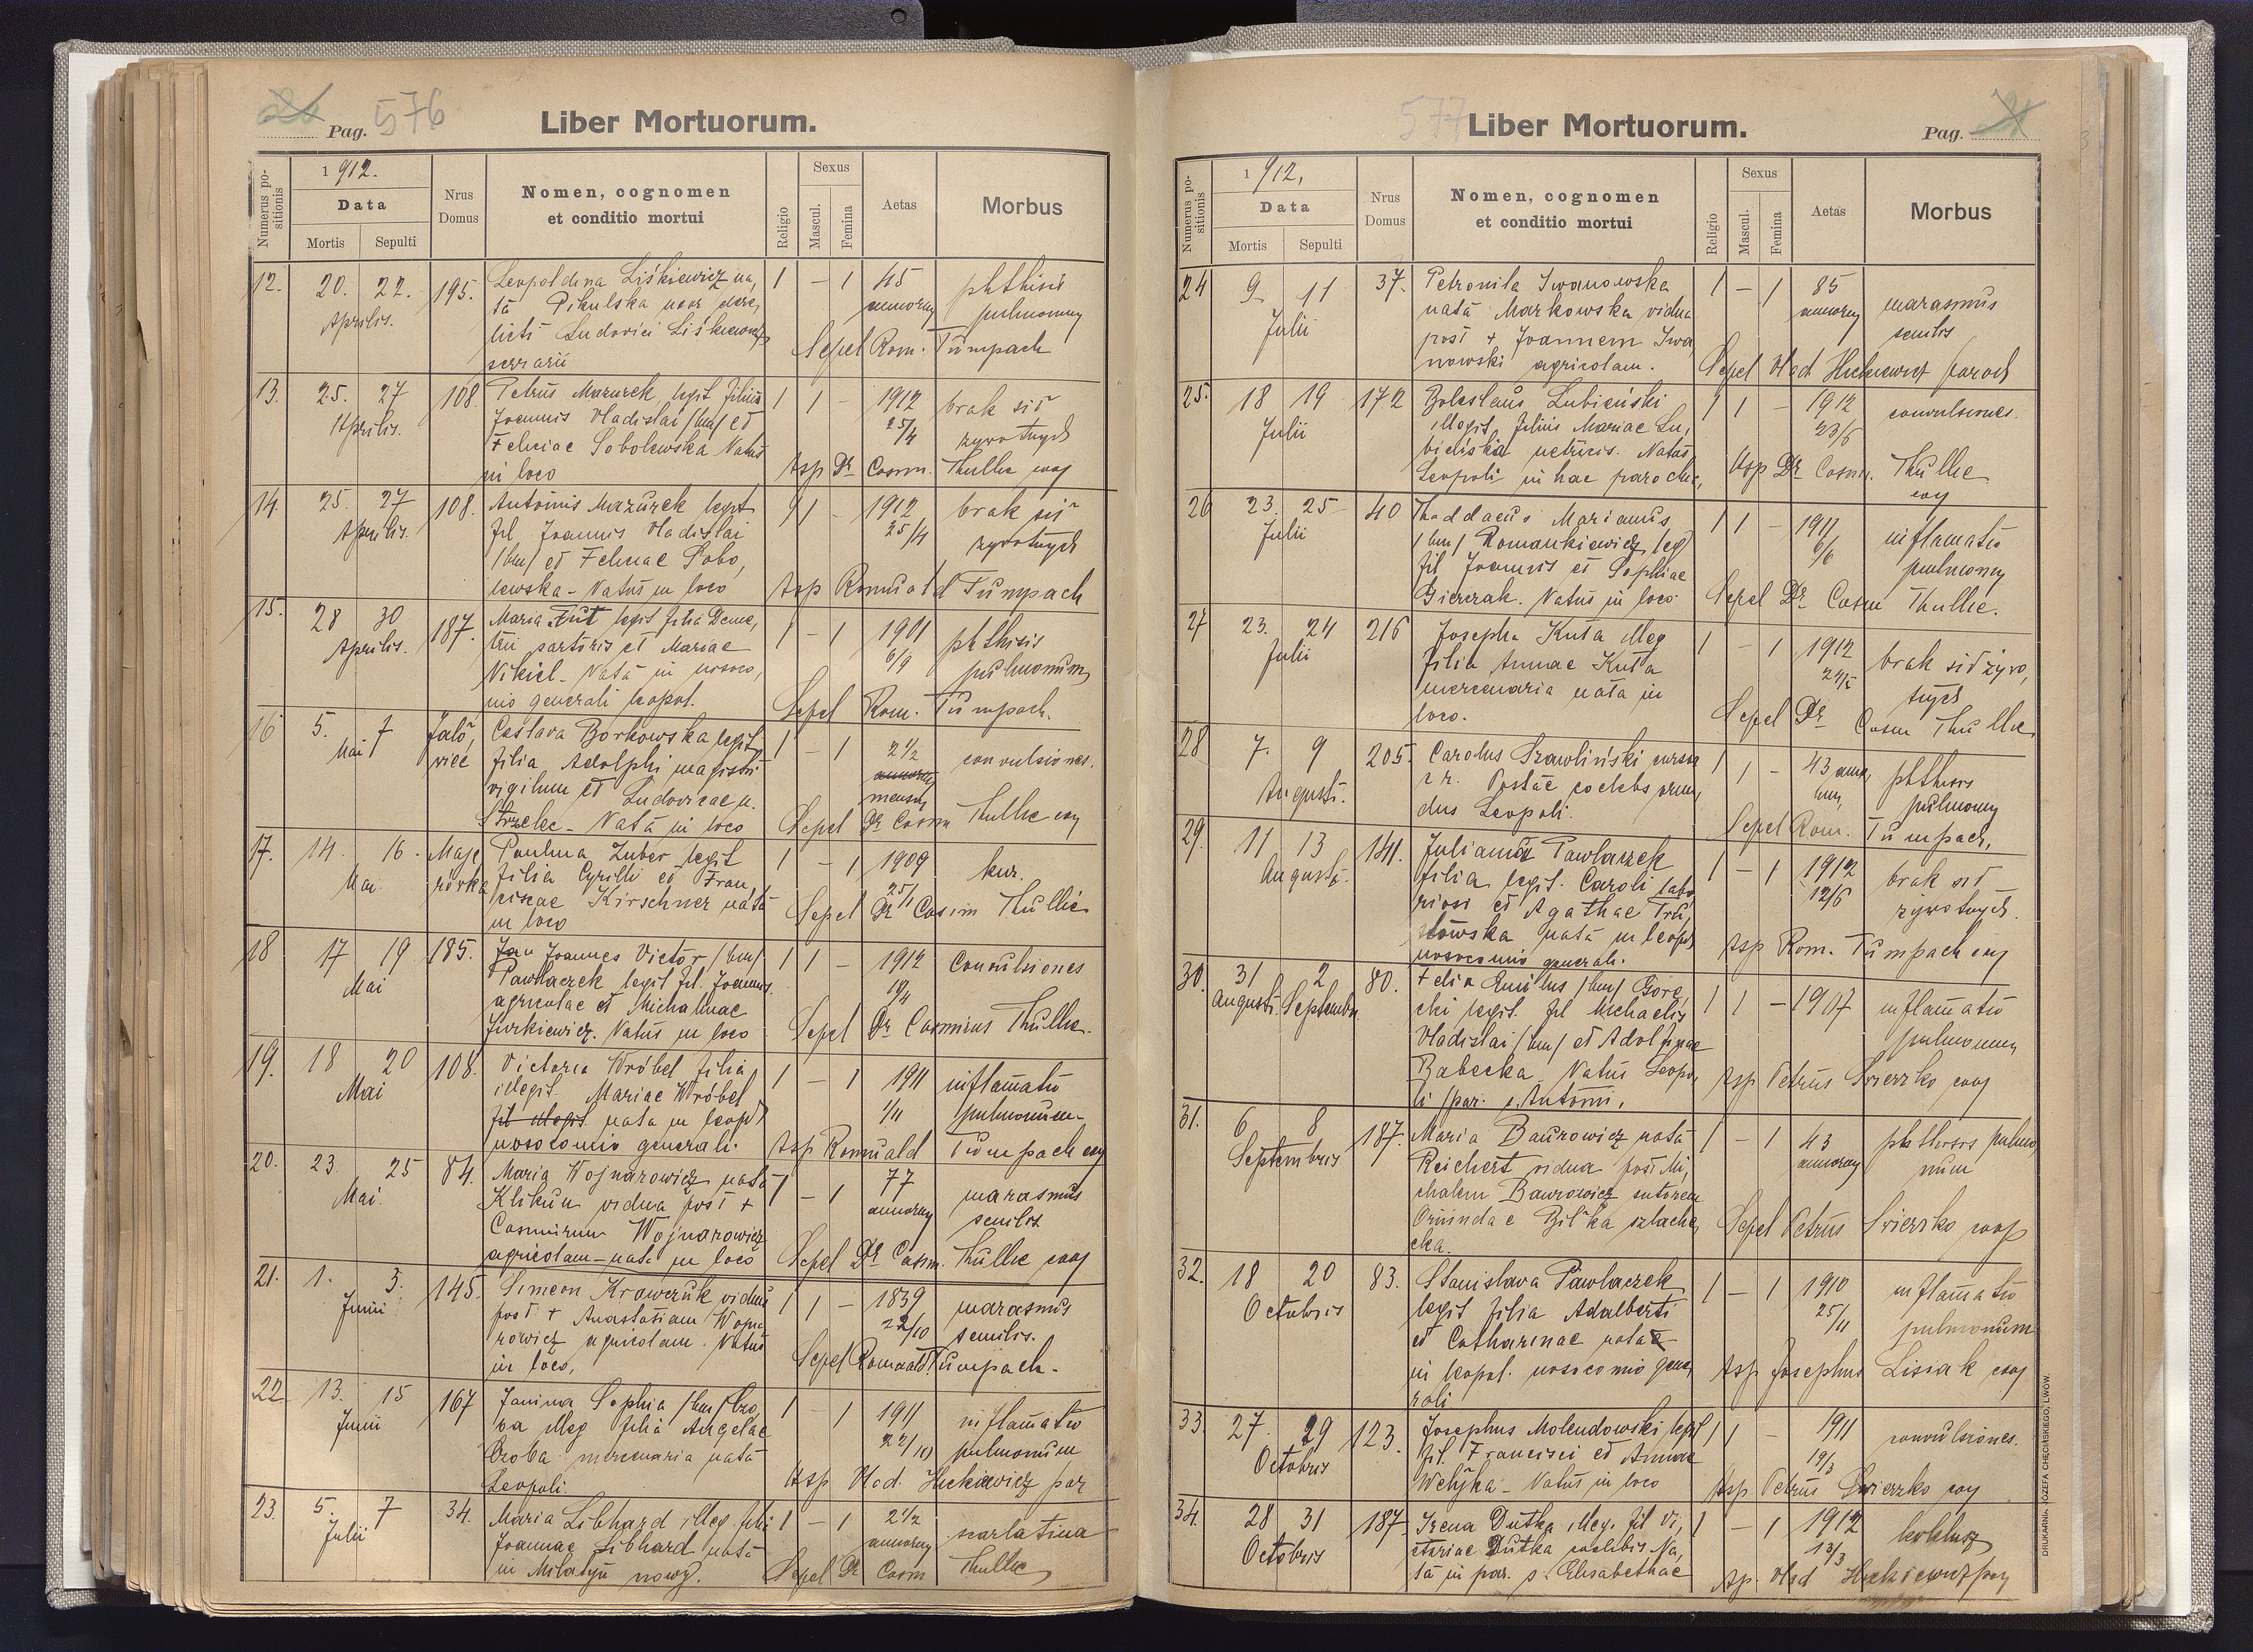 Pag. 576
Liber Mortuorum.
Numerus positionis
1912.
Data
Mortis Sepulti
Nrus Domus
Nomen, cognomen
et conditio mortui
Religio
Sexus
Mascul. Femina
Aetas
Morbus
12. 20. 22. Aprilis. 195.
Leopoldina Liśkiewicz na,
ta Pikulska uxor dere,
licti Ludovici Liśkiewicz
serrarii
1 – 1 45 annorum phthisis pulmonum
Sepel Rom. Tumpach
13. 25. 27 Aprilis. 108.
Petrus Mazurek, legit filius
Joannis Vladislai /bm/ et
Feliciae Sobolewska Natus
in loco
1 1 – 1912 25/4 brak sił żywotnych
Asp Dr Casim. Thullie coop
14. 25. 27 Aprilis. 108.
Antonius Mazurek legit
fil Joannis Vladislai
/bm/ et Feliciae Sobo,
lewska – Natus in loco
1 1 – 1912 25/4 brak sił żywotnych
Asp Romuald Tumpach
15. 28 30 Aprilis. 187.
Maria Fut legit filia Deme,
trii sartoris et Mariae
Nikiel – Nata in nosoco,
mio generali leopol.
1 – 1 1901 6/9 phthisis pulmonum
Sepel Rom. Tumpach.
16 5. 7 Mai Jało, wiec
Ceslava Borkowska legit
filia Adolphi magistri
vigilum et Ludovicae n.
Strzelec – Nata in loco
1 – 1 2 1/2 mensium convulsiones.
Sepel Dr Casim Thullie coop
17. 14. 16. Mai. Maje, rówka
Paulina Zuber legit
filia Cyrilli et Fran,
ciscae Kirschner nata
in loco
1 – 1 1909 25/1 kur.
Sepel Dr Casim Thullie
18 17 19 Mai 185.
Jan Joannes Victor /bm/
Pawlaczek legit fil. Joannis
agricolae et Michalinae
Jurkiewicz. Natus in loco
1 1 – 1912 Convulsiones
Sepel Dr Casimirus Thullie.
19. 18 20 Mai 108.
Victoria Wróbel filia
illegit. Mariae Wróbel
fil illegit. nata in leopol
nosocomio generali.
1 – 1 1911 1/11 inflamatio pulmonum.
Asp Romuald Tumpach coop
20. 23. 25 Mai. 84.
Maria Wojnarowicz nata
Klikun vidua post +
Casimirum Wojnarowicz
agricolam – nata in loco
1 – 1 77 annorum marasmus senilis
Sepel Dr Casim. Thullie coop
21. 1. 3. Junii 145.
Simeon Krawczuk viduus
post + Anastasiam Wojna
rowicz agricolam. Natus
in loco,
1 1 – 1839 22/10 marasmus senilis.
Sepel Romuald Tumpach.
22 13. 15 Junii 167
Janina Sophia /bm/ Czo,
ba illeg filia Angelae
Czoba mercenaria nata
Leopoli.
1 – 1 1911 22/10 inflamatio pulmonum
Asp Vlad. Hickiewicz par
23. 5. 7 Julii 34.
Maria Libhard illeg filia
Joannae Libhard nata
in Milatyn nowy.
1 – 1 2 1/2 annorum scarlatina
Sepel Dr Casim Thullie
577
Liber Mortuorum.
Pag.
Numerus positionis
1912,
Data
Mortis Sepulti
Nrus Domus
Nomen, cognomen
et conditio mortui
Religio
Sexus
Mascul. Femina
Aetas
Morbus
24 9 11 Julii 37.
Petronila Iwanowska
nata Markowska vidua
post + Joannem Iwa
nowski agricolam.
1 – 1 85 annorum marasmus senilis
Sepel Vlad Hickiewicz paroch
25. 18 19 Julii 172
Boleslaus Lubieński
illegit filius Mariae Lu,
bieńska nutricis. Natus
Leopoli in hac parochia,
1 1 – 1912 23/6 convulsiones.
Asp Dr Casim. Thullie coop
26 23. 25 Julii 40
Thaddaeus Marianus
/bm/ Romankiewicz leg
fil Joannis et Sophiae
Gierczak. Natus in loco
1 1 – 1911 6/6 inflamatio pulmonum
Sepel Dr Casim Thullie.
27 23. 24 Julii 216
Josepha Kuta illeg
filia Annae Kuta
mercenaria nata in
loco.
1 – 1 1912 brak sił żywo, tnych
Sepel Dr Casim Thullie
28 7. 9 Augusti. 205.
Carolus Szawliński cursor
c r. Postae coelebs oriun
dus Leopoli.
1 1 – 43 anno, rum, phthisis pulmonum
Sepel Rom. Tumpach,
29. 11 13 Augusti. 141.
Juliana Pawlaczek
filia legit. Caroli labo
riosi et Agathae Tru,
słowska nata in leopol
nosocomio generali.
1 – 1 1912 12/6 brak sił żywotnych.
Asp Rom. Tumpach coop
30. 31 Augusti. 2 Septembris 80.
Felix Emilius /bm/ Gore,
cki legit. fil Michaelis
Vladislai /bm/ et Adolfinae
Babecka Natus Leopo,
li /par. s. Antonii,
1 1 – 1907 inflamatio pulmonum
Asp Petrus Świerzko coop
31. 6 8 Septembris 187.
Maria Baurowicz nata
Reichert vidua post Mi,
chalem Baurowicz sutorem
Oriunda e Biłka szlache,
cka.
1 – 1 43 annorum phthisis pulmo, num
Sepel Petrus Świerzko coop
32. 18 20 Octobris 83.
Stanislava Pawlaczek
legit filia Adalberti
et Catharinae nata
in leopol. nosocomio gene,
rali
1 – 1 1910 25/11 inflamatio pulmonum
Asp Josephus Lisiak coop
33. 27. 29 Octobris 123.
Josephus Molendowski legit
fil. Francisci et Annae
Wełyka – Natus in loco
1 1 – 1911 19/3 convulsiones.
Asp Petrus Świerzko coop
34. 28 31 Octobris 187.
Irena Dutka illeg. fil Vi,
ctoriae Dutka coelebis Na,
ta in par. s. Elisabethae
1 – 1 1912 13/3 koklusz
Asp. Vlad Hickiewicz par
DRUKARNI JÓZEFA CHĘCIŃSKIEGO, LWÓW.